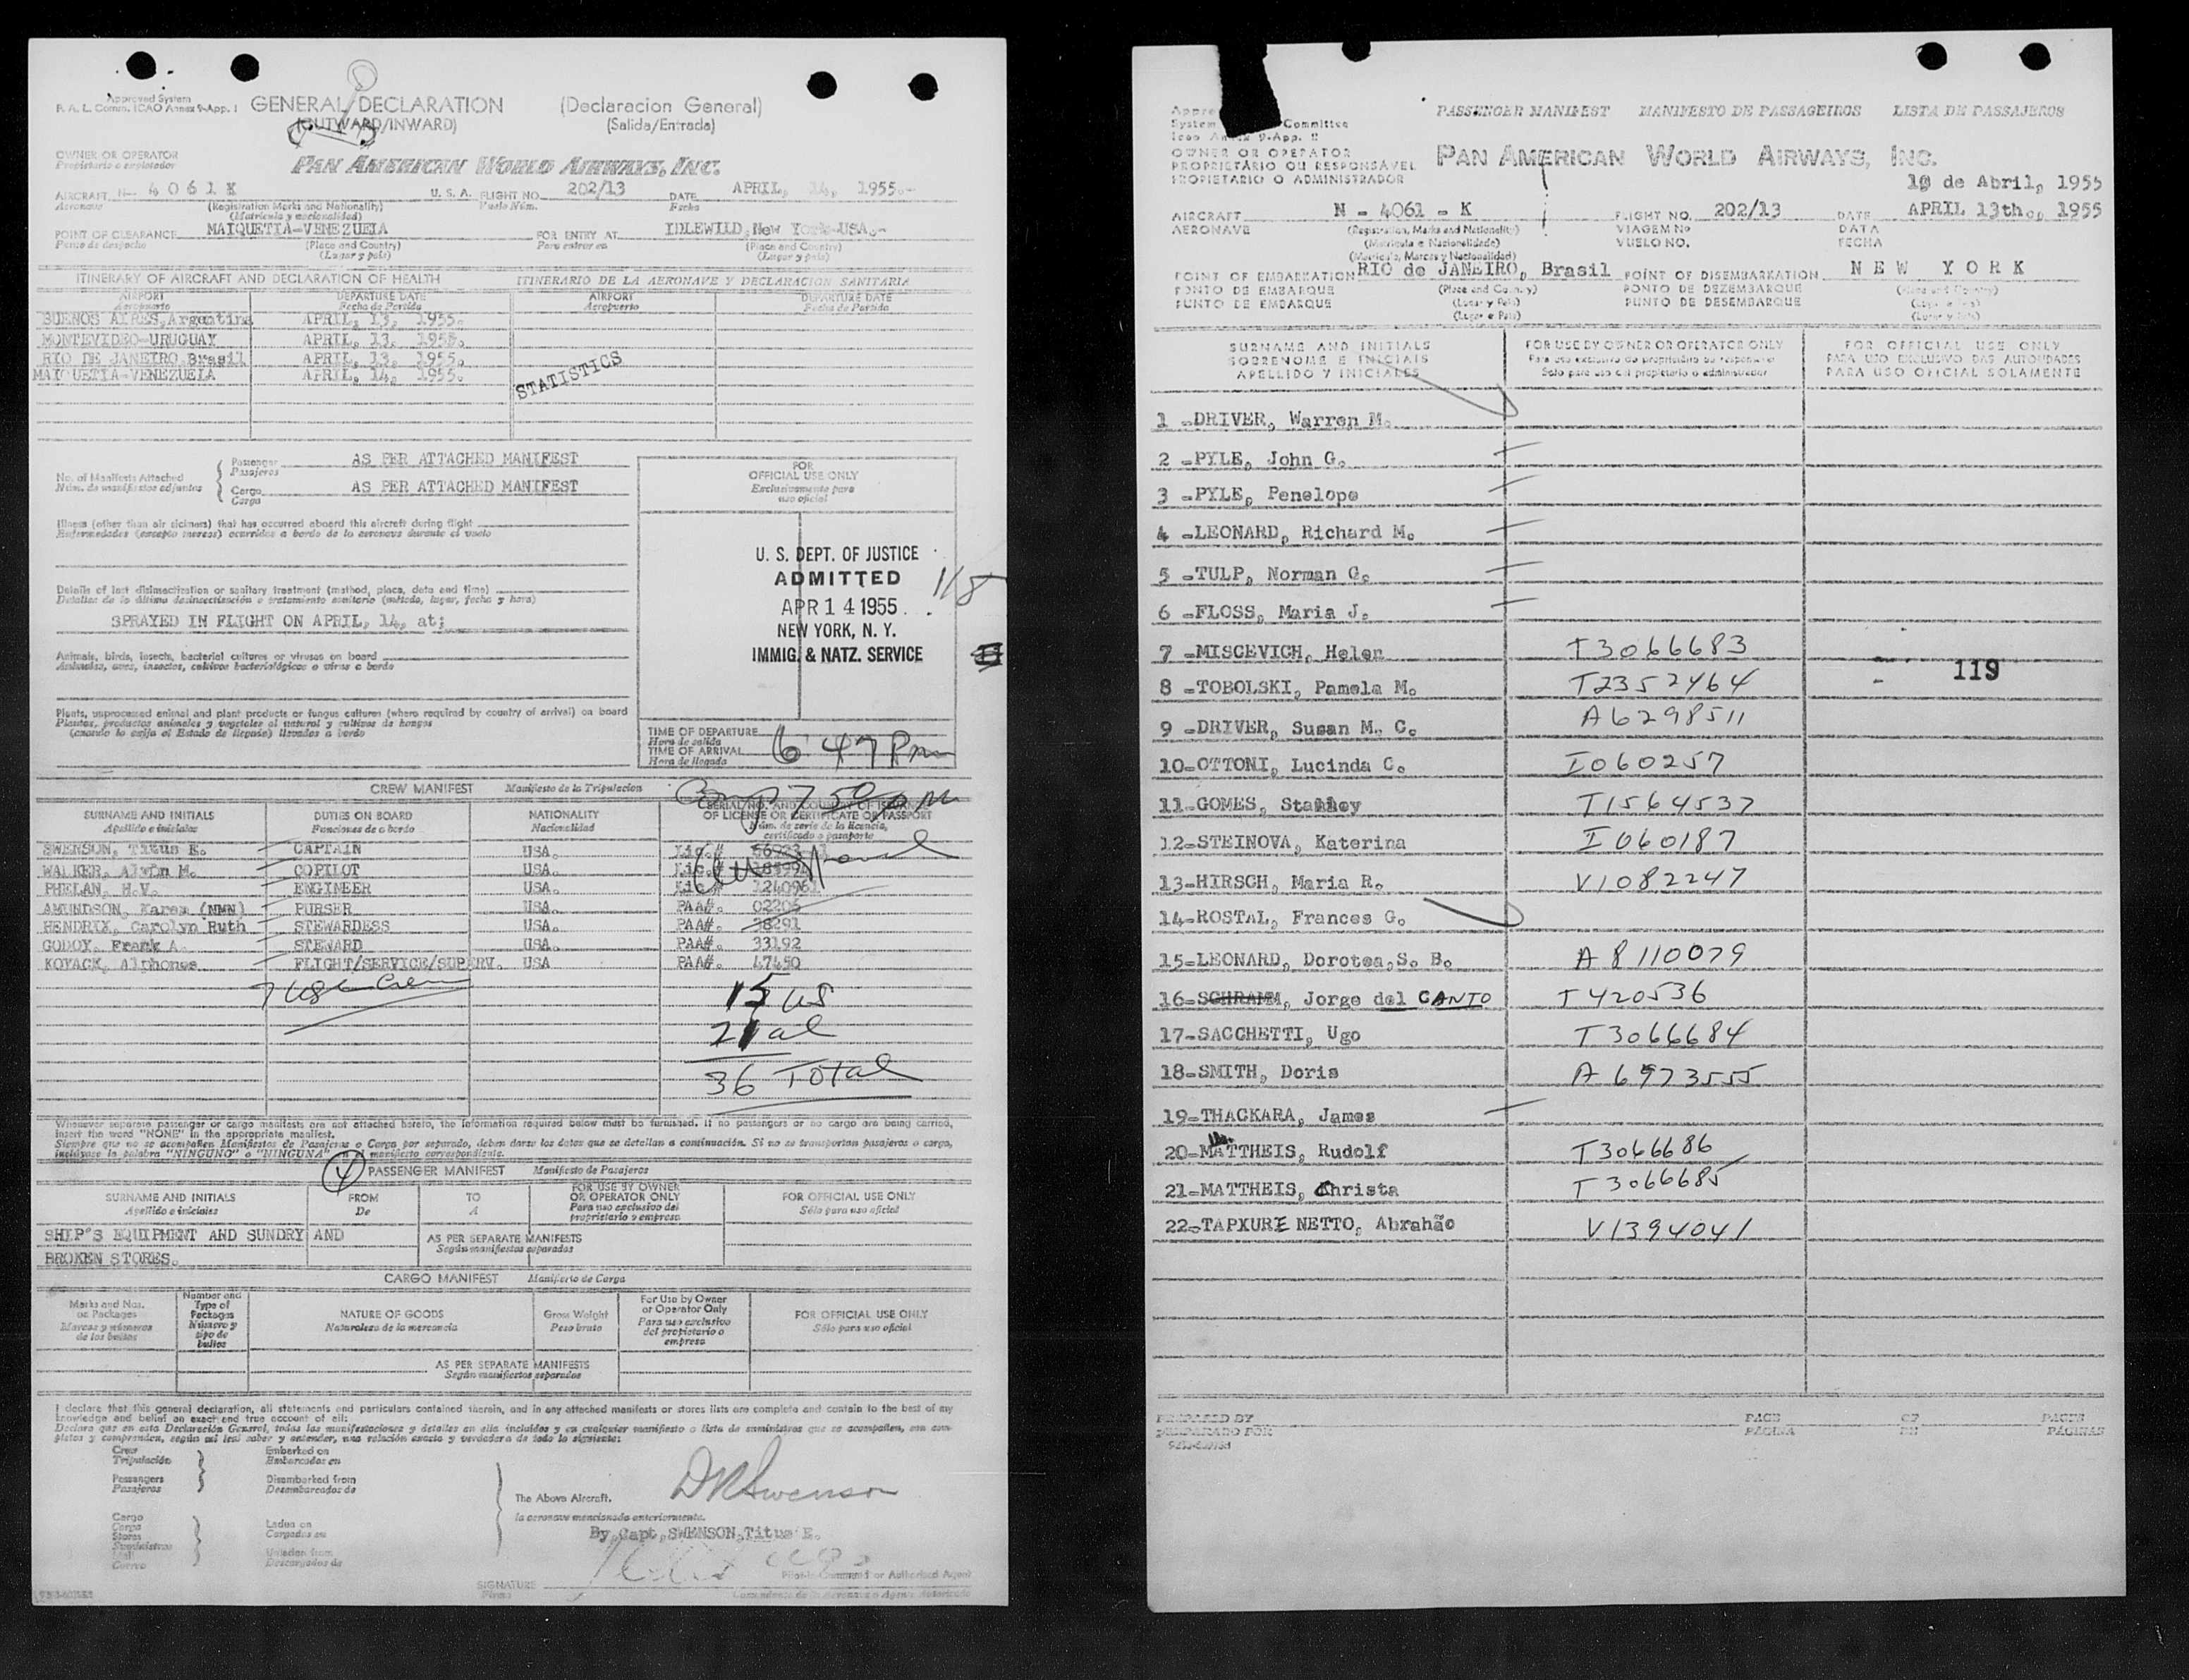 Approved System
F. A. L. Comm. ICAO Annex 9-App. 1
GENERAL DECLARATION (Declaracion General)
(OUTWARD/INWARD) (Salida/Entrada)
OWNER OR OPERATOR
Propietario o explotador
PAN AMERICAN WORLD AIRWAYS, INC.
AIRCRAFT N- 4061K U. S. A. FLIGHT NO. 202/13 DATE APRIL, 14, 1955.-
Aeronave (Registration Marks and Nationality) Vuelo Núm. Fecha
(Matrícula y nacionalidad)
POINT OF CLEARANCE MAIQUETIA-VENEZUELA FOR ENTRY AT IDLEWILD, New York-USA.-
Punto de despacho (Place and Country) Para entrar en (Place and Country)
(Lugar y país) (Lugar y país)
ITINERARY OF AIRCRAFT AND DECLARATION OF HEALTH ITINERARIO DE LA AERONAVE Y DECLARACION SANITARIA
AIRPORT DEPARTURE DATE AIRPORT DEPARTURE DATE
Aeropuerto Fecha de Partida Aeropuerto Fecha de Partida
BUENOS AIRES, Argentina APRIL, 13, 1955.
MONTEVIDEO-URUGUAY APRIL, 13, 1955.
RIO DE JANEIRO, Brasil APRIL, 13, 1955.
MAIQUETIA-VENEZUELA APRIL, 14, 1955.
STATISTICS
No. of Manifests Attached
Núm. de manifiestos adjuntos
Passenger AS PER ATTACHED MANIFEST
Pasajeros
Cargo AS PER ATTACHED MANIFEST
Carga
FOR
OFFICIAL USE ONLY
Exclusivamente para
uso oficial
Illness (other than air sickness) that has occurred aboard this aircraft during flight
Enfermedades (excepto mareos) ocurridas a bordo de la aeronave durante el vuelo
U. S. DEPT. OF JUSTICE
ADMITTED
APR 14 1955
NEW YORK, N. Y.
IMMIG. & NATZ. SERVICE
118
Details of last disinsectization or sanitary treatment (method, place, date and time)
Detalles de la última desinsectización o tratamiento sanitario (método, lugar, fecha y hora)
SPRAYED IN FLIGHT ON APRIL, 14, at;
Animals, birds, insects, bacterial cultures or viruses on board
Animales, aves, insectos, cultivos bacteriológicos o virus a bordo
Plants, unprocessed animal and plant products or fungus cultures (where required by country of arrival) on board
Plantas, productos animales y vegetales al natural y cultivos de hongos
(cuando lo exija el Estado de llegada) llevados a bordo
TIME OF DEPARTURE
Hora de salida
TIME OF ARRIVAL 6 47 Pm
Hora de llegada
CREW MANIFEST Manifiesto de la Tripulacion
Comp 7 50 PM
SURNAME AND INITIALS DUTIES ON BOARD NATIONALITY SERIAL NO. AND COUNTRY OF ISSUANCE
OF LICENSE OR CERTIFICATE OR PASSPORT
Apellido e iniciales Funciones de a bordo Nacionalidad Núm. de serie de la licencia,
certificado o pasaporte
SWENSON, Titus E. CAPTAIN USA. Lic.#
WALKER, Alvin M. COPILOT USA. Lic.#
PHELAN, H.V. ENGINEER USA. Lic.# 1240961
AMUNDSON, Karen (NMN) PURSER USA. PAA#. 02206
HENDRIX, Carolyn Ruth STEWARDESS USA. PAA#. 38291
GODOY, Frank A. STEWARD USA. PAA#. 33192
KOVACK, Alphones FLIGHT/SERVICE/SUPERV. USA PAA#. 47450
7 US Crew
15 US
21 al
36 Total
Whenever separate passenger or cargo manifests are not attached hereto, the information required below must be furnished. If no passengers or no cargo are being carried,
insert the word "NONE" in the appropriate manifest.
Siempre que no se acompañen Manifiestos de Pasajeros o Carga por separado, deben darse los datos que se detallan a continuación. Si no se transportan pasajeros o carga,
inclúyase la palabra "NINGUNO" o "NINGUNA" manifiesto correspondiente.
PASSENGER MANIFEST Manifiesto de Pasajeros
SURNAME AND INITIALS FROM TO FOR USE BY OWNER
OR OPERATOR ONLY FOR OFFICIAL USE ONLY
Apellido e iniciales De A Para uso exclusivo del
propietario o empresa Sólo para uso oficial
SHIP'S EQUIPMENT AND SUNDRY AND AS PER SEPARATE MANIFESTS
Según manifiestos separados
BROKEN STORES.
CARGO MANIFEST Manifiesto de Carga
Marks and Nos.
on Packages
Marcas y números
de los bultos
Number and
Type of
Packages
Número y
tipo de
bultos
NATURE OF GOODS
Naturaleza de la mercancía
Gross Weight
Peso bruto
For Use by Owner
or Operator Only
Para uso exclusivo
del propietario o
empresa
FOR OFFICIAL USE ONLY
Sólo para uso oficial
AS PER SEPARATE MANIFESTS
Según manifiestos separados
I declare that this general declaration, all statements and particulars contained therein, and in any attached manifests or stores lists are complete and contain to the best of my
knowledge and belief an exact and true account of all:
Declaro que en esta Declaración General, todas las manifestaciones y detalles en ella incluidos y en cualquier manifiesto o lista de suministros que se acompañen, son completos y comprenden, según mi leal saber y entender, una relación exacta y verdadera de todo lo siguiente:
Crew Embarked on
Tripulación Embarcados en
Passengers Disembarked from
Pasajeros Desembarcados de
Cargo
Carga
Stores
Suministros
Mail
Correo
Laden on
Cargados en
Unladen from
Descargados de
The Above Aircraft.
la aeronave mencionada anteriormente.
By, Capt, SWENSON, Titus E.
SIGNATURE Pilot-in-Command or Authorized Agent
Firma Comandante de la Aeronave o Agente Autorizado
Appre
System Committee
Icao Annex 9-App. 2
PASSENGER MANIFEST MANIFESTO DE PASSAGEIROS LISTA DE PASSAJEROS
OWNER OR OPERATOR
PROPRIETÁRIO OU RESPONSÁVEL
PROPIETARIO O ADMINISTRADOR
PAN AMERICAN WORLD AIRWAYS, INC.
de Abril, 1955
AIRCRAFT N - 4061 - K FLIGHT NO. 202/13 DATE APRIL 13th., 1955
AERONAVE (Registration, Marks and Nationality) VIAGEM Nº DATA
(Matrícula e Nacionalidade) VUELO NO. FECHA
(Matricula, Marcas y Nacionalidad)
POINT OF EMBARKATION RIO de JANEIRO, Brasil POINT OF DISEMBARKATION NEW YORK
PONTO DE EMBARQUE (Place and Country) PONTO DE DEZEMBARQUE (Place and Country)
PUNTO DE EMBARQUE (Lugar y País) PUNTO DE DESEMBARQUE
(Lugar e País)
SURNAME AND INITIALS FOR USE BY OWNER OR OPERATOR ONLY FOR OFFICIAL USE ONLY
SOBRENOME E INICIAIS Para uso exclusivo do proprietário ou responsável PARA USO EXCLUSIVO DAS AUTORIDADES
APELLIDO Y INICIALES Solo para uso del propietario o administrador PARA USO OFICIAL SOLAMENTE
1 -DRIVER, Warren M.
2 -PYLE, John G.
3 -PYLE, Penelope
4 -LEONARD, Richard M.
5 -TULP, Norman G.
6 -FLOSS, Maria J.
7 -MISCEVICH, Helen T3066683
119
8 -TOBOLSKI, Pamela M. T2352464
9 -DRIVER, Susan M. C. A6298511
10-OTTONI, Lucinda C. I060257
11-GOMES, Stanley T1564537
12-STEINOVA, Katerina I060187
13-HIRSCH, Maria R. V1082247
14-ROSTAL, Frances G.
15-LEONARD, Dorotea, S. B. A8110079
16-SCHRAMM, Jorge del CANTO T420536
17-SACCHETTI, Ugo T3066684
18-SMITH, Doris A6973555
19-THACKARA, James
20-MATTHEIS, Rudolf T3066686
21-MATTHEIS, Christa T3066685
22-TAPXURE NETTO, Abrahão V1394041
PREPARED BY PAGE OF PAGES
PREPARADO POR PÁGINA DE PÁGINAS